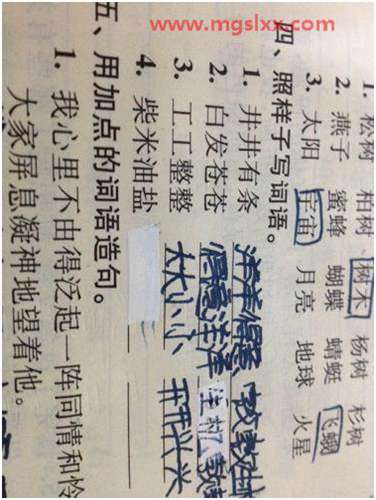 www.mgslxx.com
1. 松树 柏树 树木 杨树 杉树
2. 燕子 蜜蜂 蝴蝶 蜻蜓 飞蛾
3. 太阳 宇宙 月亮 地球 火星
四、照样子写词语。
1. 井井有条 洋洋得意
2. 白发苍苍 得意洋洋
3. 工工整整 大大小小
4. 柴米油盐
五、用加点的词语造句。
1. 我心里不由得泛起一阵同情和怜
大家屏息凝神地望着他。